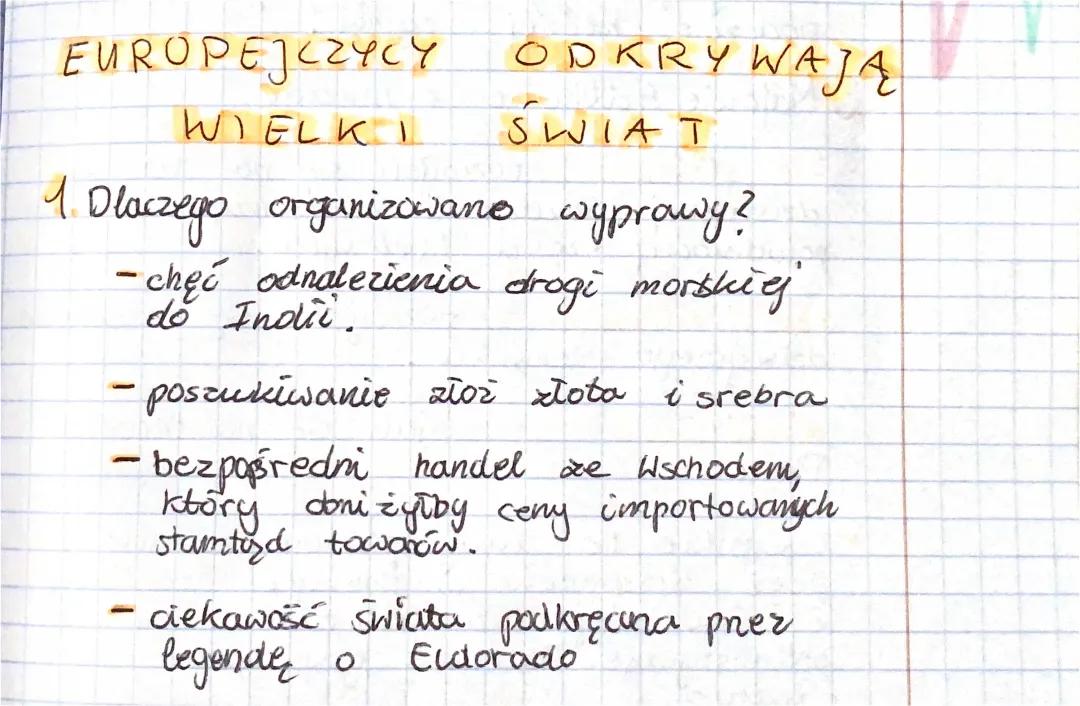 EUROPEJCZYCY ODKRYWAJĄ
WIELKI ŚWIAT
1. Dlaczego organizowano wyprawy?
- chęć odnalezienia drogi morskiej
do Indii.
- poszukiwanie złóż złota i srebra
- bezpośredni handel ze Wschodem,
który obniżyłby ceny importowanych
stamtąd towarów.
- ciekawość świata podkręcana przez
legendę o Eldorado